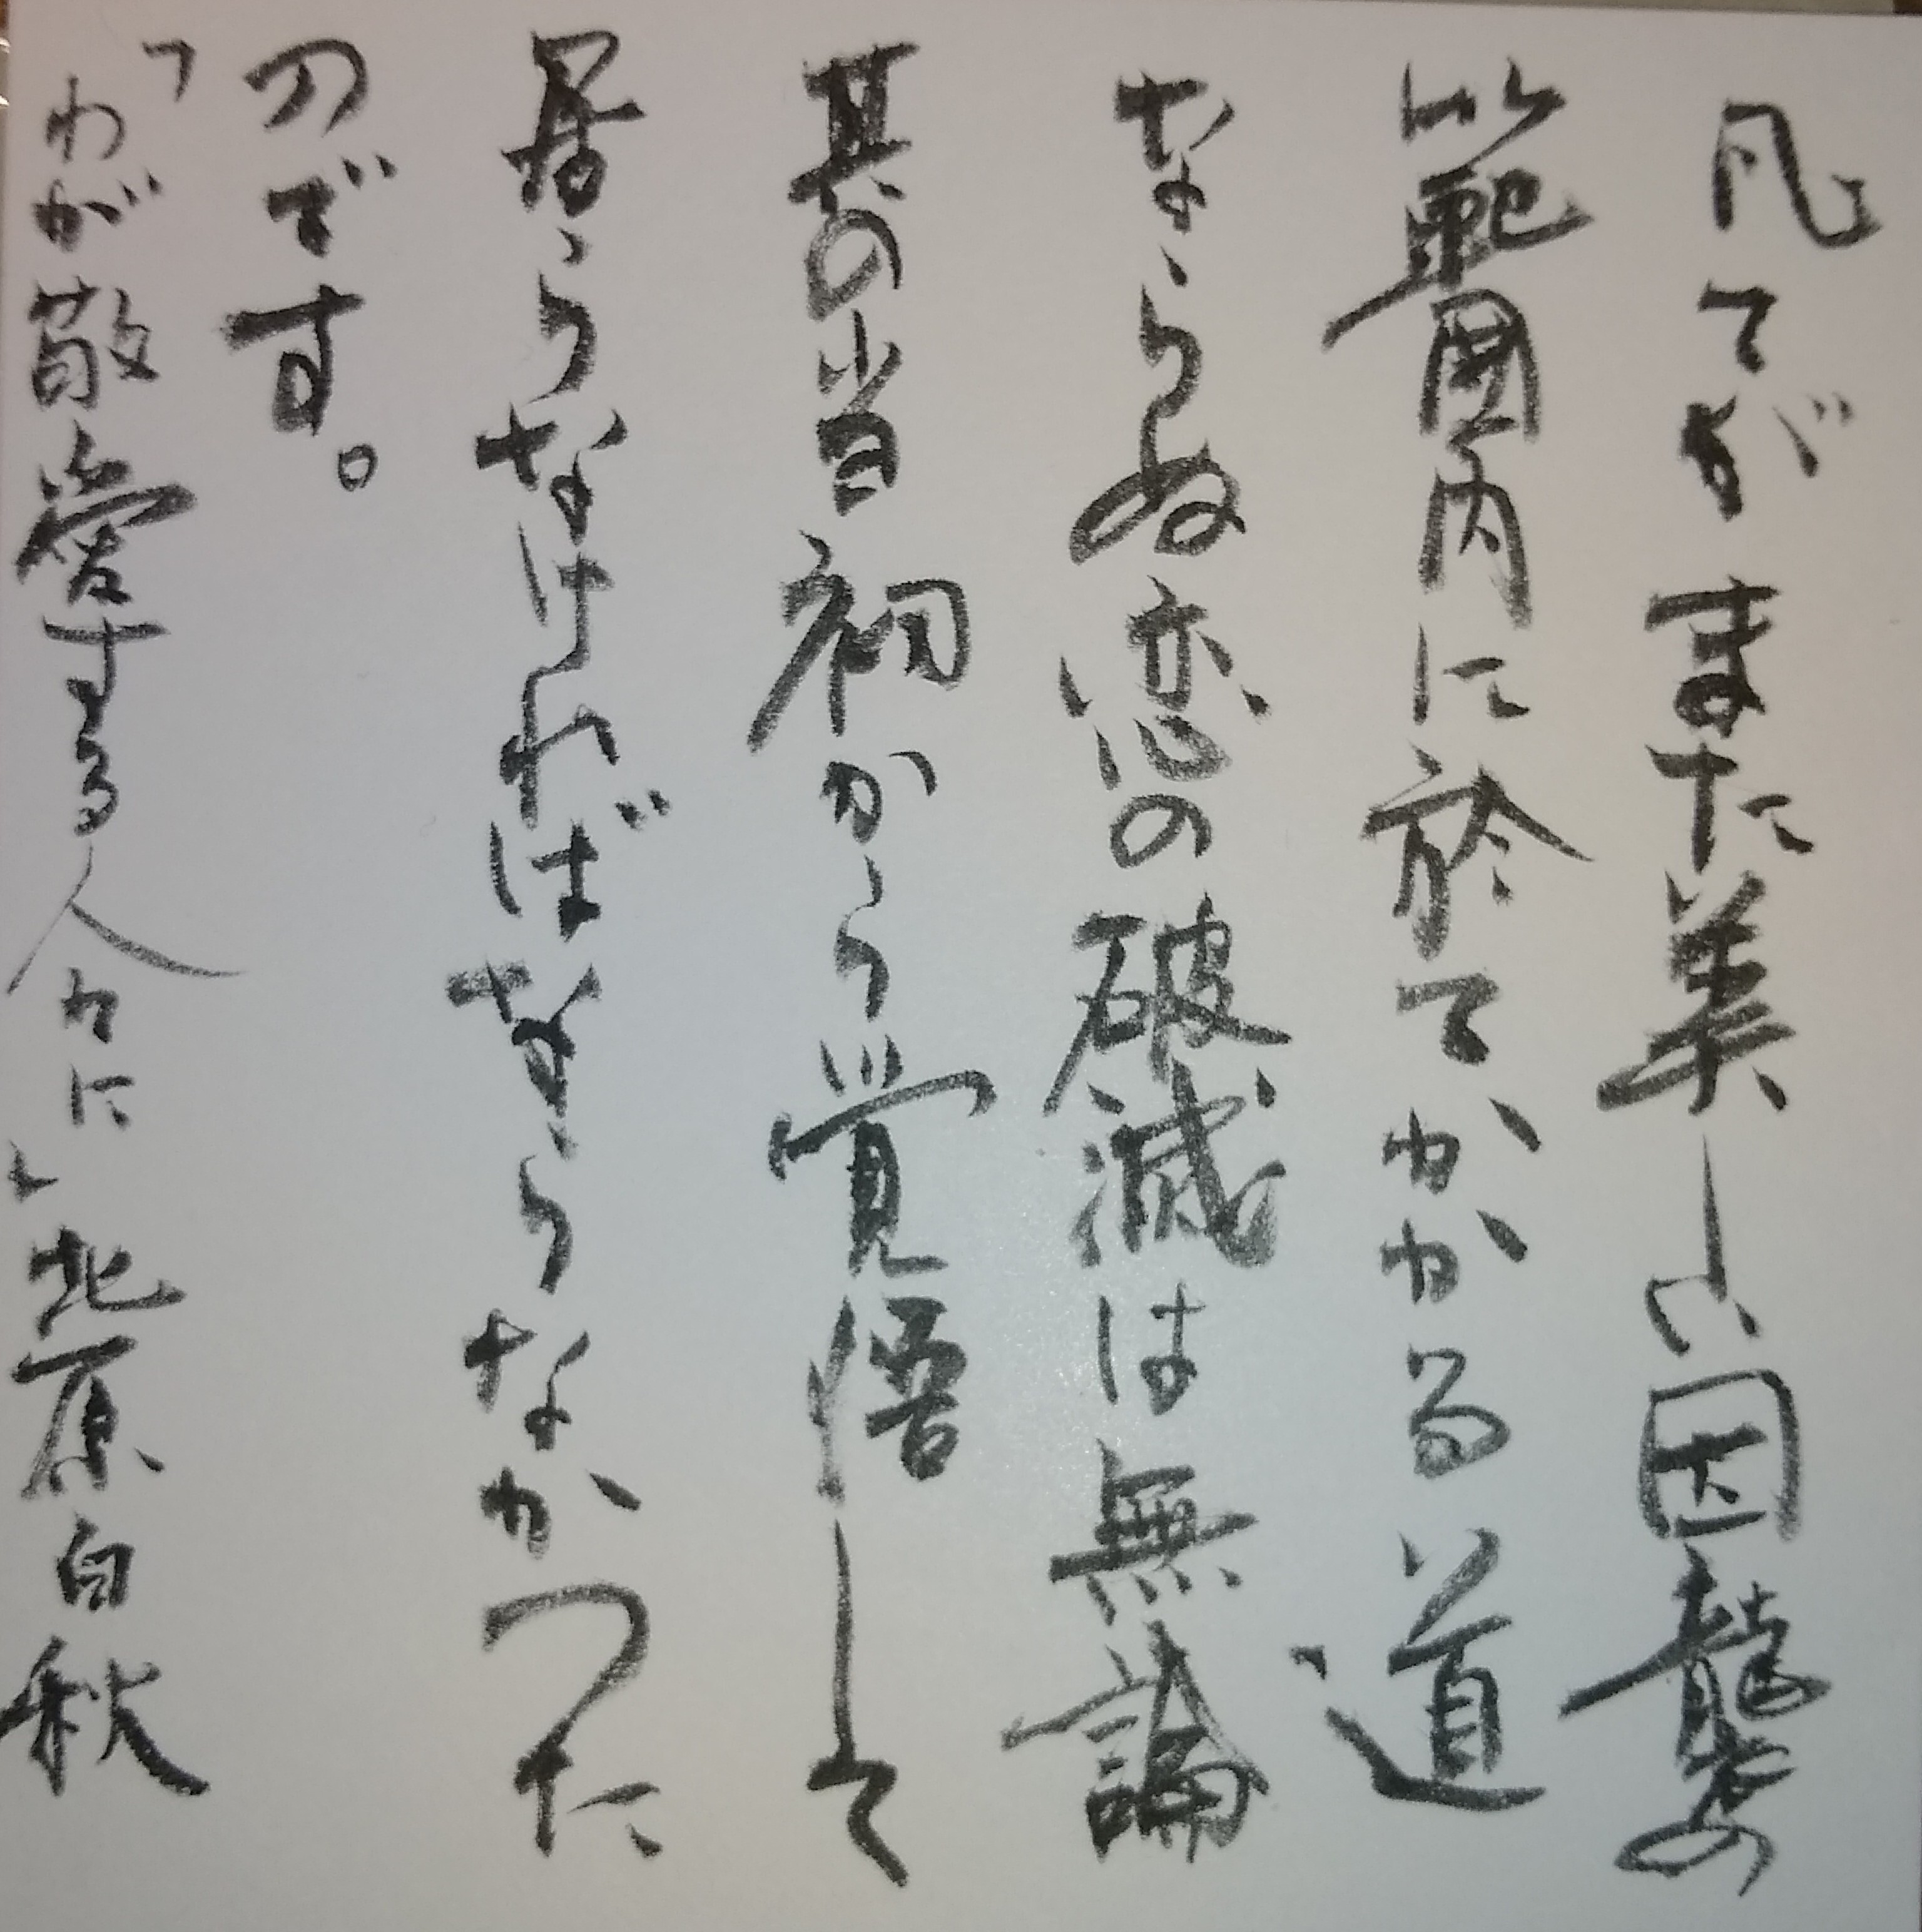 凡てがまだ美しい因襲の
範囲内に於てかかる道
ならぬ恋の破滅は無論
其の当初から覚悟して
居らなければならなかつた
のです。
「わが敬愛する人々に」北原白秋